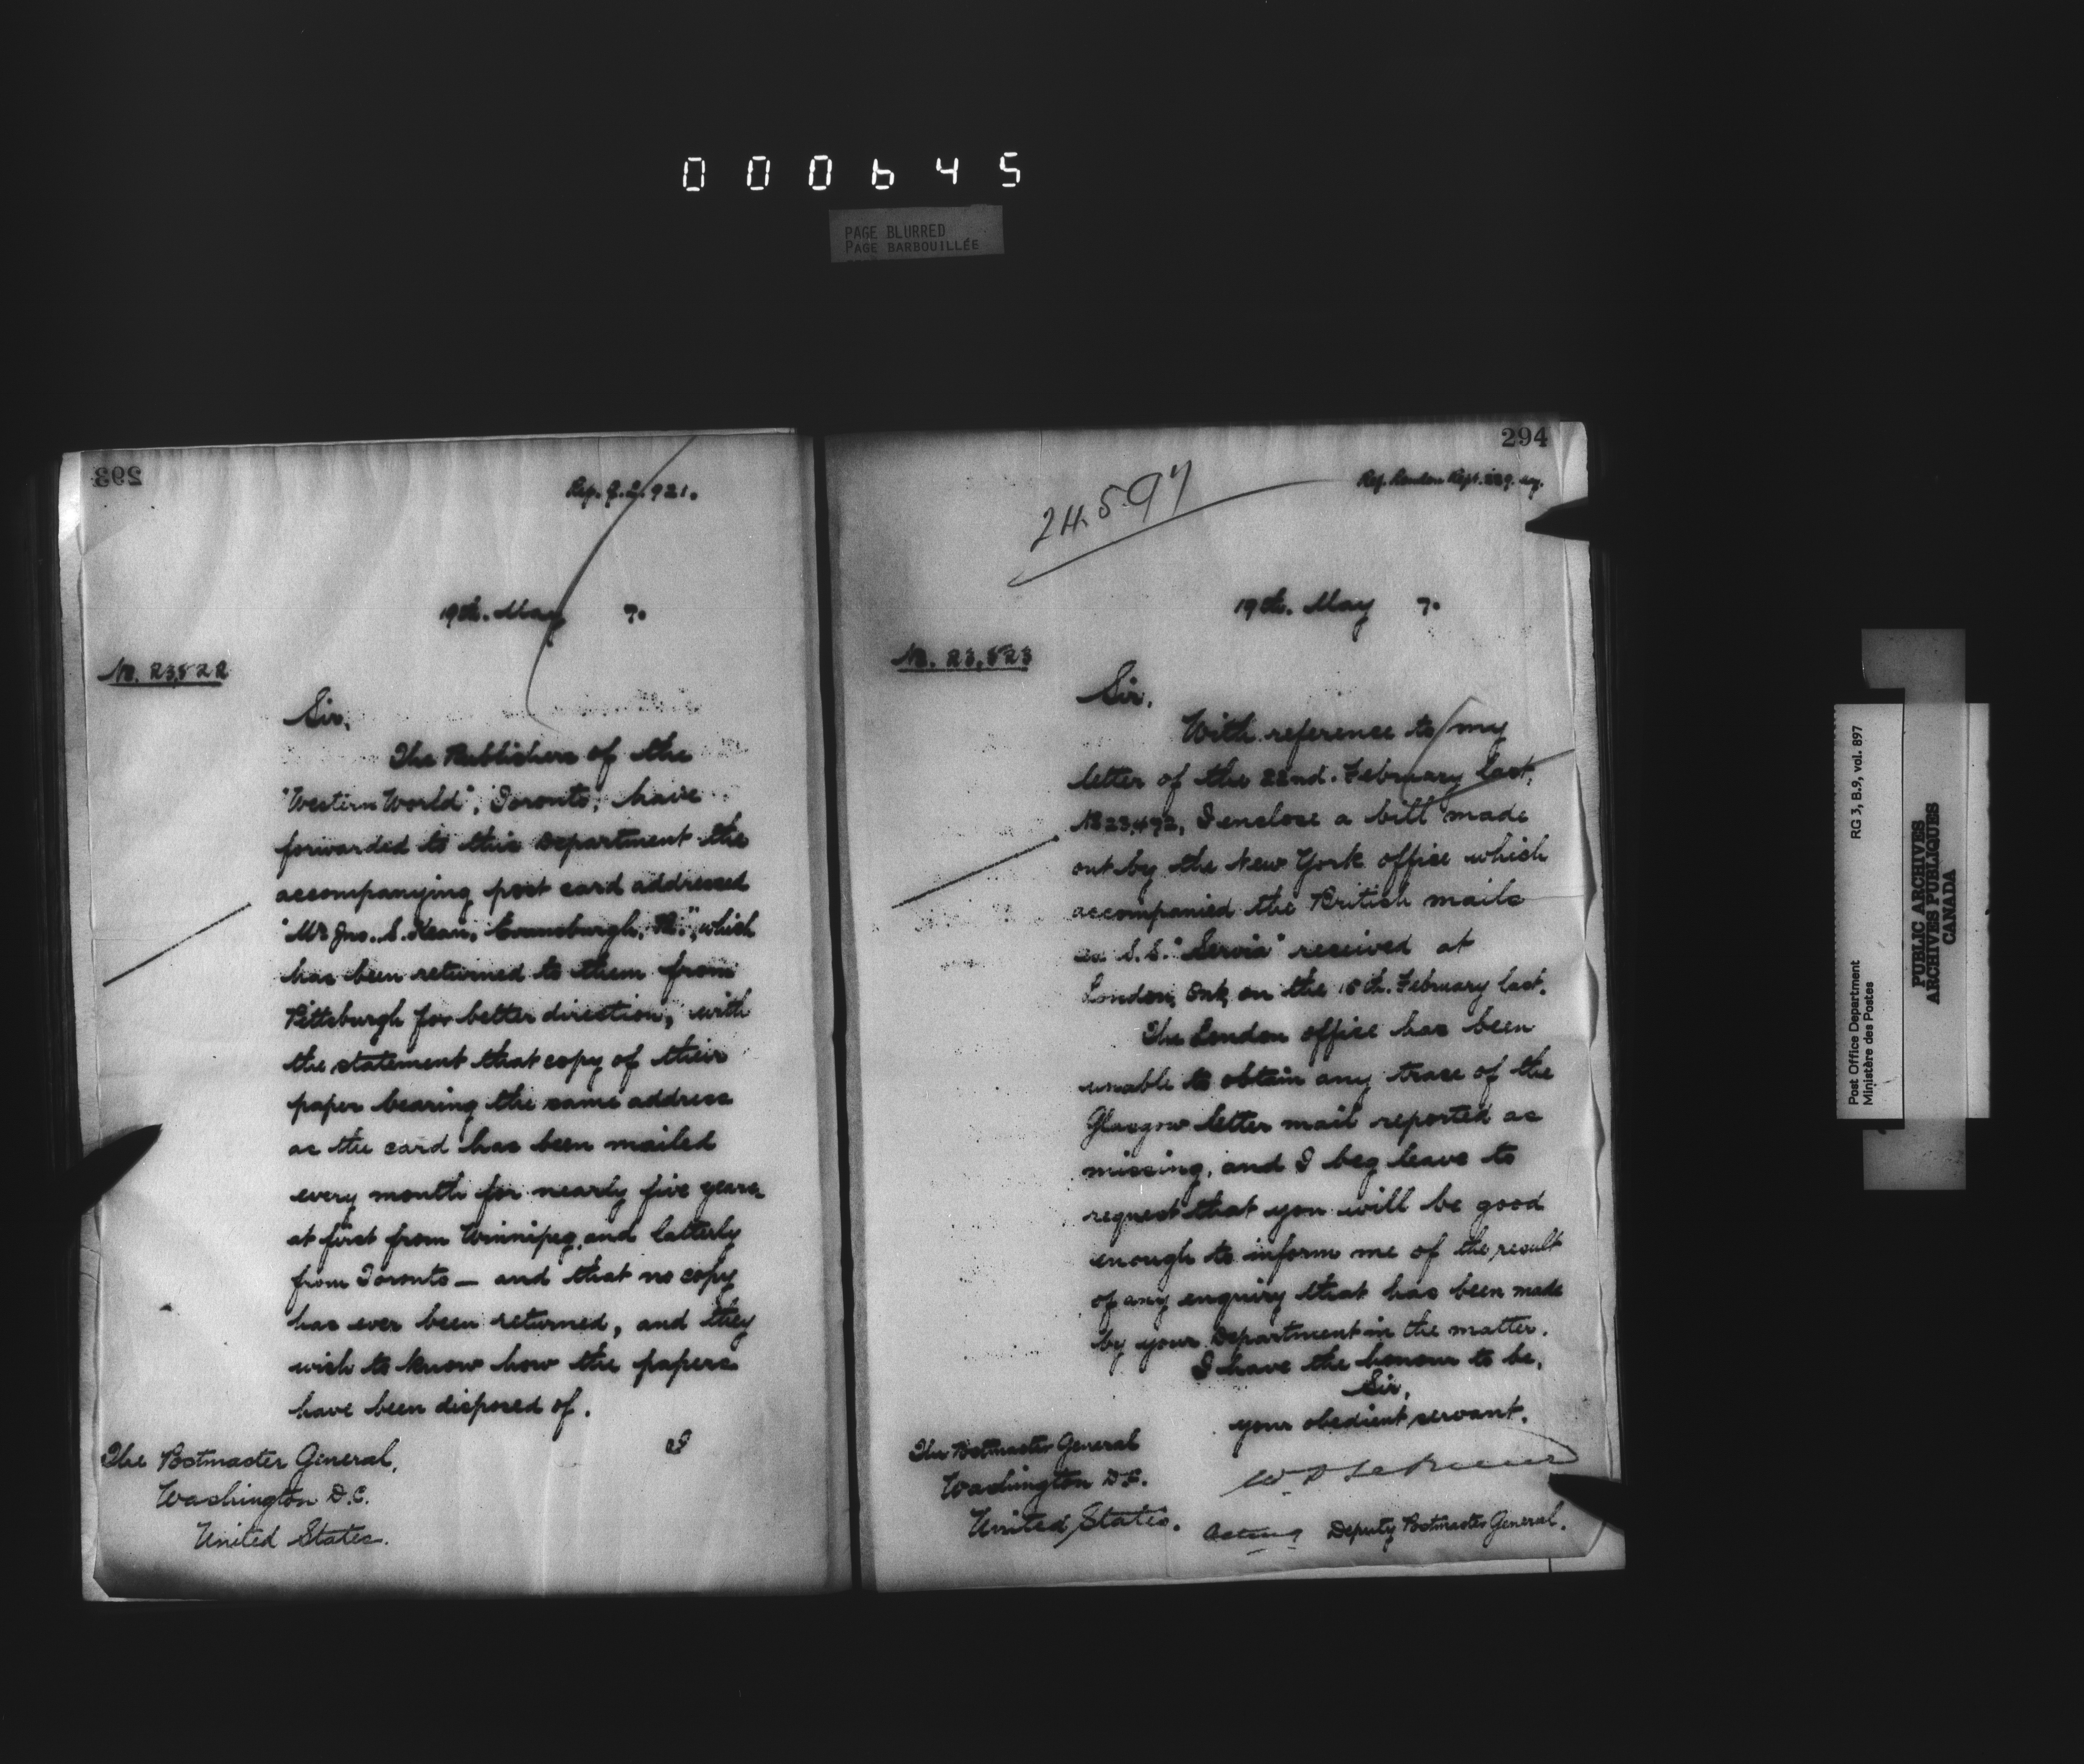 000645
PAGE BLURRED
PAGE BARBOUILLÉE
293
921.
19th. May 7.
No. 23,822
Sir,
The Publishers of the
"Western World", Toronto, have
forwarded to this Department the
accompanying post card addressed
"Mr Jno. S. Kean, Pa.", which
has been returned to them from
Pittsburgh for better direction, with
the statement that copy of their
paper bearing the same address
as the card has been mailed
every month for nearly five years
at first from Winnipeg, and latterly
from Toronto — and that no copy
has ever been returned, and they
wish to know how the papers
have been disposed of.
I
The Postmaster General,
Washington D.C.
United States.
294
24.597
Ref. London Rept.
19th. May 7.
No. 23,823
Sir,
With reference to my
letter of the 22nd. February last,
No 23,492, I enclose a bill made
out by the New York office which
accompanied the British mails
S.S. "Servia" received at
London, Ont, on the February last.
The London office has been
unable to obtain any trace of the
Glasgow letter mail reported as
missing, and I beg leave to
request that you will be good
enough to inform me of the result
of any enquiry that has been made
by your Department in the matter.
I have the honour to be,
Sir,
your obedient servant,
Acting Deputy Postmaster General.
The Postmaster General
Washington D.C.
United States.
Post Office Department RG 3, B.9, vol. 897
Ministère des Postes
PUBLIC ARCHIVES
ARCHIVES PUBLIQUES
CANADA